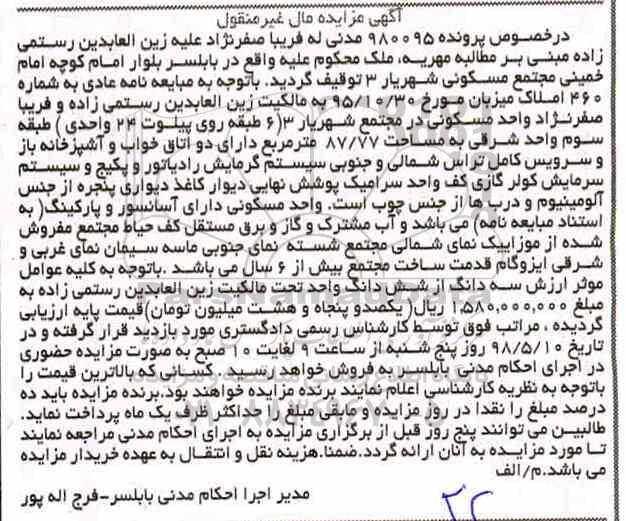 آگهی مزایده مال غیرمنقول
درخصوص پرونده ۹۸۰۰۹۵ مدنی له فریبا صفرنژاد علیه زین العابدین رستمی
زاده مبنی بر مطالبه مهریه، ملک محکوم علیه واقع در بابلسر بلوار امام کوچه امام
خمینی مجتمع مسکونی شهریار ۳ توقیف گردید. باتوجه به مبایعه نامه عادی به شماره
۴۶۰ املاک میزبان مورخ ۹۵/۱۰/۳۰ به مالکیت زین العابدین رستمی زاده و فریبا
صفرنژاد واحد مسکونی در مجتمع شهریار ۳(۶ طبقه روی پیلوت ۲۴ واحدی ) طبقه
سوم واحد شرقی به مساحت ۸۷/۷۷ مترمربع دارای دو اتاق خواب و آشپزخانه باز
و سرویس کامل تراس شمالی و جنوبی سیستم گرمایش رادیاتور و پکیج و سیستم
سرمایش کولر گازی کف واحد سرامیک پوشش نهایی دیوار کاغذ دیواری پنجره از جنس
آلومینیوم و درب ها از جنس چوب است. واحد مسکونی دارای آسانسور و پارکینگ( به
استناد مبایعه نامه) می باشد و آب مشترک و گاز و برق مستقل کف حیاط مجتمع مفروش
شده از موزاییک نمای شمالی مجتمع شسته نمای جنوبی ماسه سیمان نمای غربی و
شرقی ایزوگام قدمت ساخت مجتمع بیش از ۶ سال می باشد .باتوجه به کلیه عوامل
موثر ارزش سه دانگ از شش دانگ واحد تحت مالکیت زین العابدین رستمی زاده به
مبلغ ۱,۵۸۰,۰۰۰,۰۰۰ ریال( یکصدو پنجاه و هشت میلیون تومان)قیمت پایه ارزیابی
گردیده ، مراتب فوق توسط کارشناس رسمی دادگستری مورد بازدید قرار گرفته و در
تاریخ ۹۸/۵/۱۰ روز پنج شنبه از ساعت ۹ لغایت ۱۰ صبح به صورت مزایده حضوری
در اجرای احکام مدنی بابلسر به فروش خواهد رسید . کسانی که بالاترین قیمت را
باتوجه به نظریه کارشناسی اعلام نمایند برنده مزایده خواهند بود.برنده مزایده باید ده
درصد مبلغ را نقدا در روز مزایده و مابقی مبلغ را حداکثر ظرف یک ماه پرداخت نماید.
طالبین می توانند پنج روز قبل از برگزاری مزایده به اجرای احکام مدنی مراجعه نمایند
تا مورد مزایده به آنان ارائه گردد.ضمنا.هزینه نقل و انتقال به عهده خریدار مزایده
می باشد.م/الف
مدیر اجرا احکام مدنی بابلسر-فرج اله پور